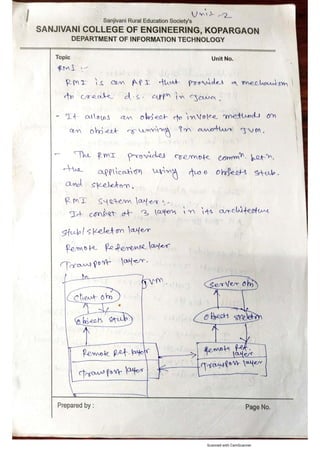 Unit-2
Sanjivani Rural Education Society's
SANJIVANI COLLEGE OF ENGINEERING, KOPARGAON
DEPARTMENT OF INFORMATION TECHNOLOGY
Topic Unit No.
RMI :-
RMI is an API that provides a mechanism
to create d.s. appn in Java.
- It allows an object to invoke methods on
an object running in another JVM.
- The RMI provides remote commn betn.
the application using two objects stub.
and skeleton.
RMI System layer :-
It consist of 3 layers in its architecture
stub/skeleton layer
Remote Reference layer
Transport layer.
JVM.
client obj
server obj
objects stub
object skeleton
Remote Ref. layer
Transport layer
Remote Ref.
layer
Transport layer
Prepared by : Page No.
Scanned with CamScanner